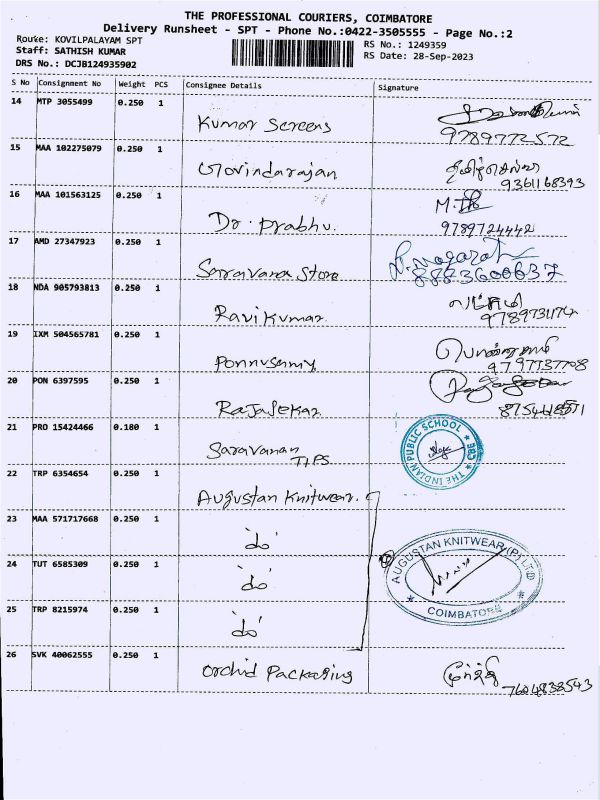 THE PROFESSIONAL COURIERS, COIMBATORE
Delivery Runsheet - SPT - Phone No.:0422-3505555 - Page No.:2
Rouke: KOVILPALAYAM SPT
RS No.: 1249359
Staff: SATHISH KUMAR
RS Date: 28-Sep-2023
DRS No.: DCJB124935902
S No Consignment No Weight PCS Consignee Details Signature
14 MTP 3055499 0.250 1
Kumar Screens 9789772572
15 MAA 102275079 0.250 1
Govindarajan 9361168393
16 MAA 101563125 0.250 1
Dr. Prabhu. 9789724442
17 AMD 27347923 0.250 1
Saravana Store 8883600637
18 NDA 905793813 0.250 1
Ravikumar
19 IXM 504565781 0.250 1
Ponnusamy 9797737708
20 PON 6397595 0.250 1
Rajasekar
21 PRO 15424466 0.180 1
Saravanan
TIPS
THE INDIAN PUBLIC SCHOOL ★ CBE ★
22 TRP 6354654 0.250 1
Augustan Knitwear.
23 MAA 571717668 0.250 1
do
24 TUT 6585309 0.250 1
do
25 TRP 8215974 0.250 1
do
AUGUSTAN KNITWEAR (P) LTD
★ COIMBATORE ★
26 SVK 40062555 0.250 1
Orchid Packaging 7604838543